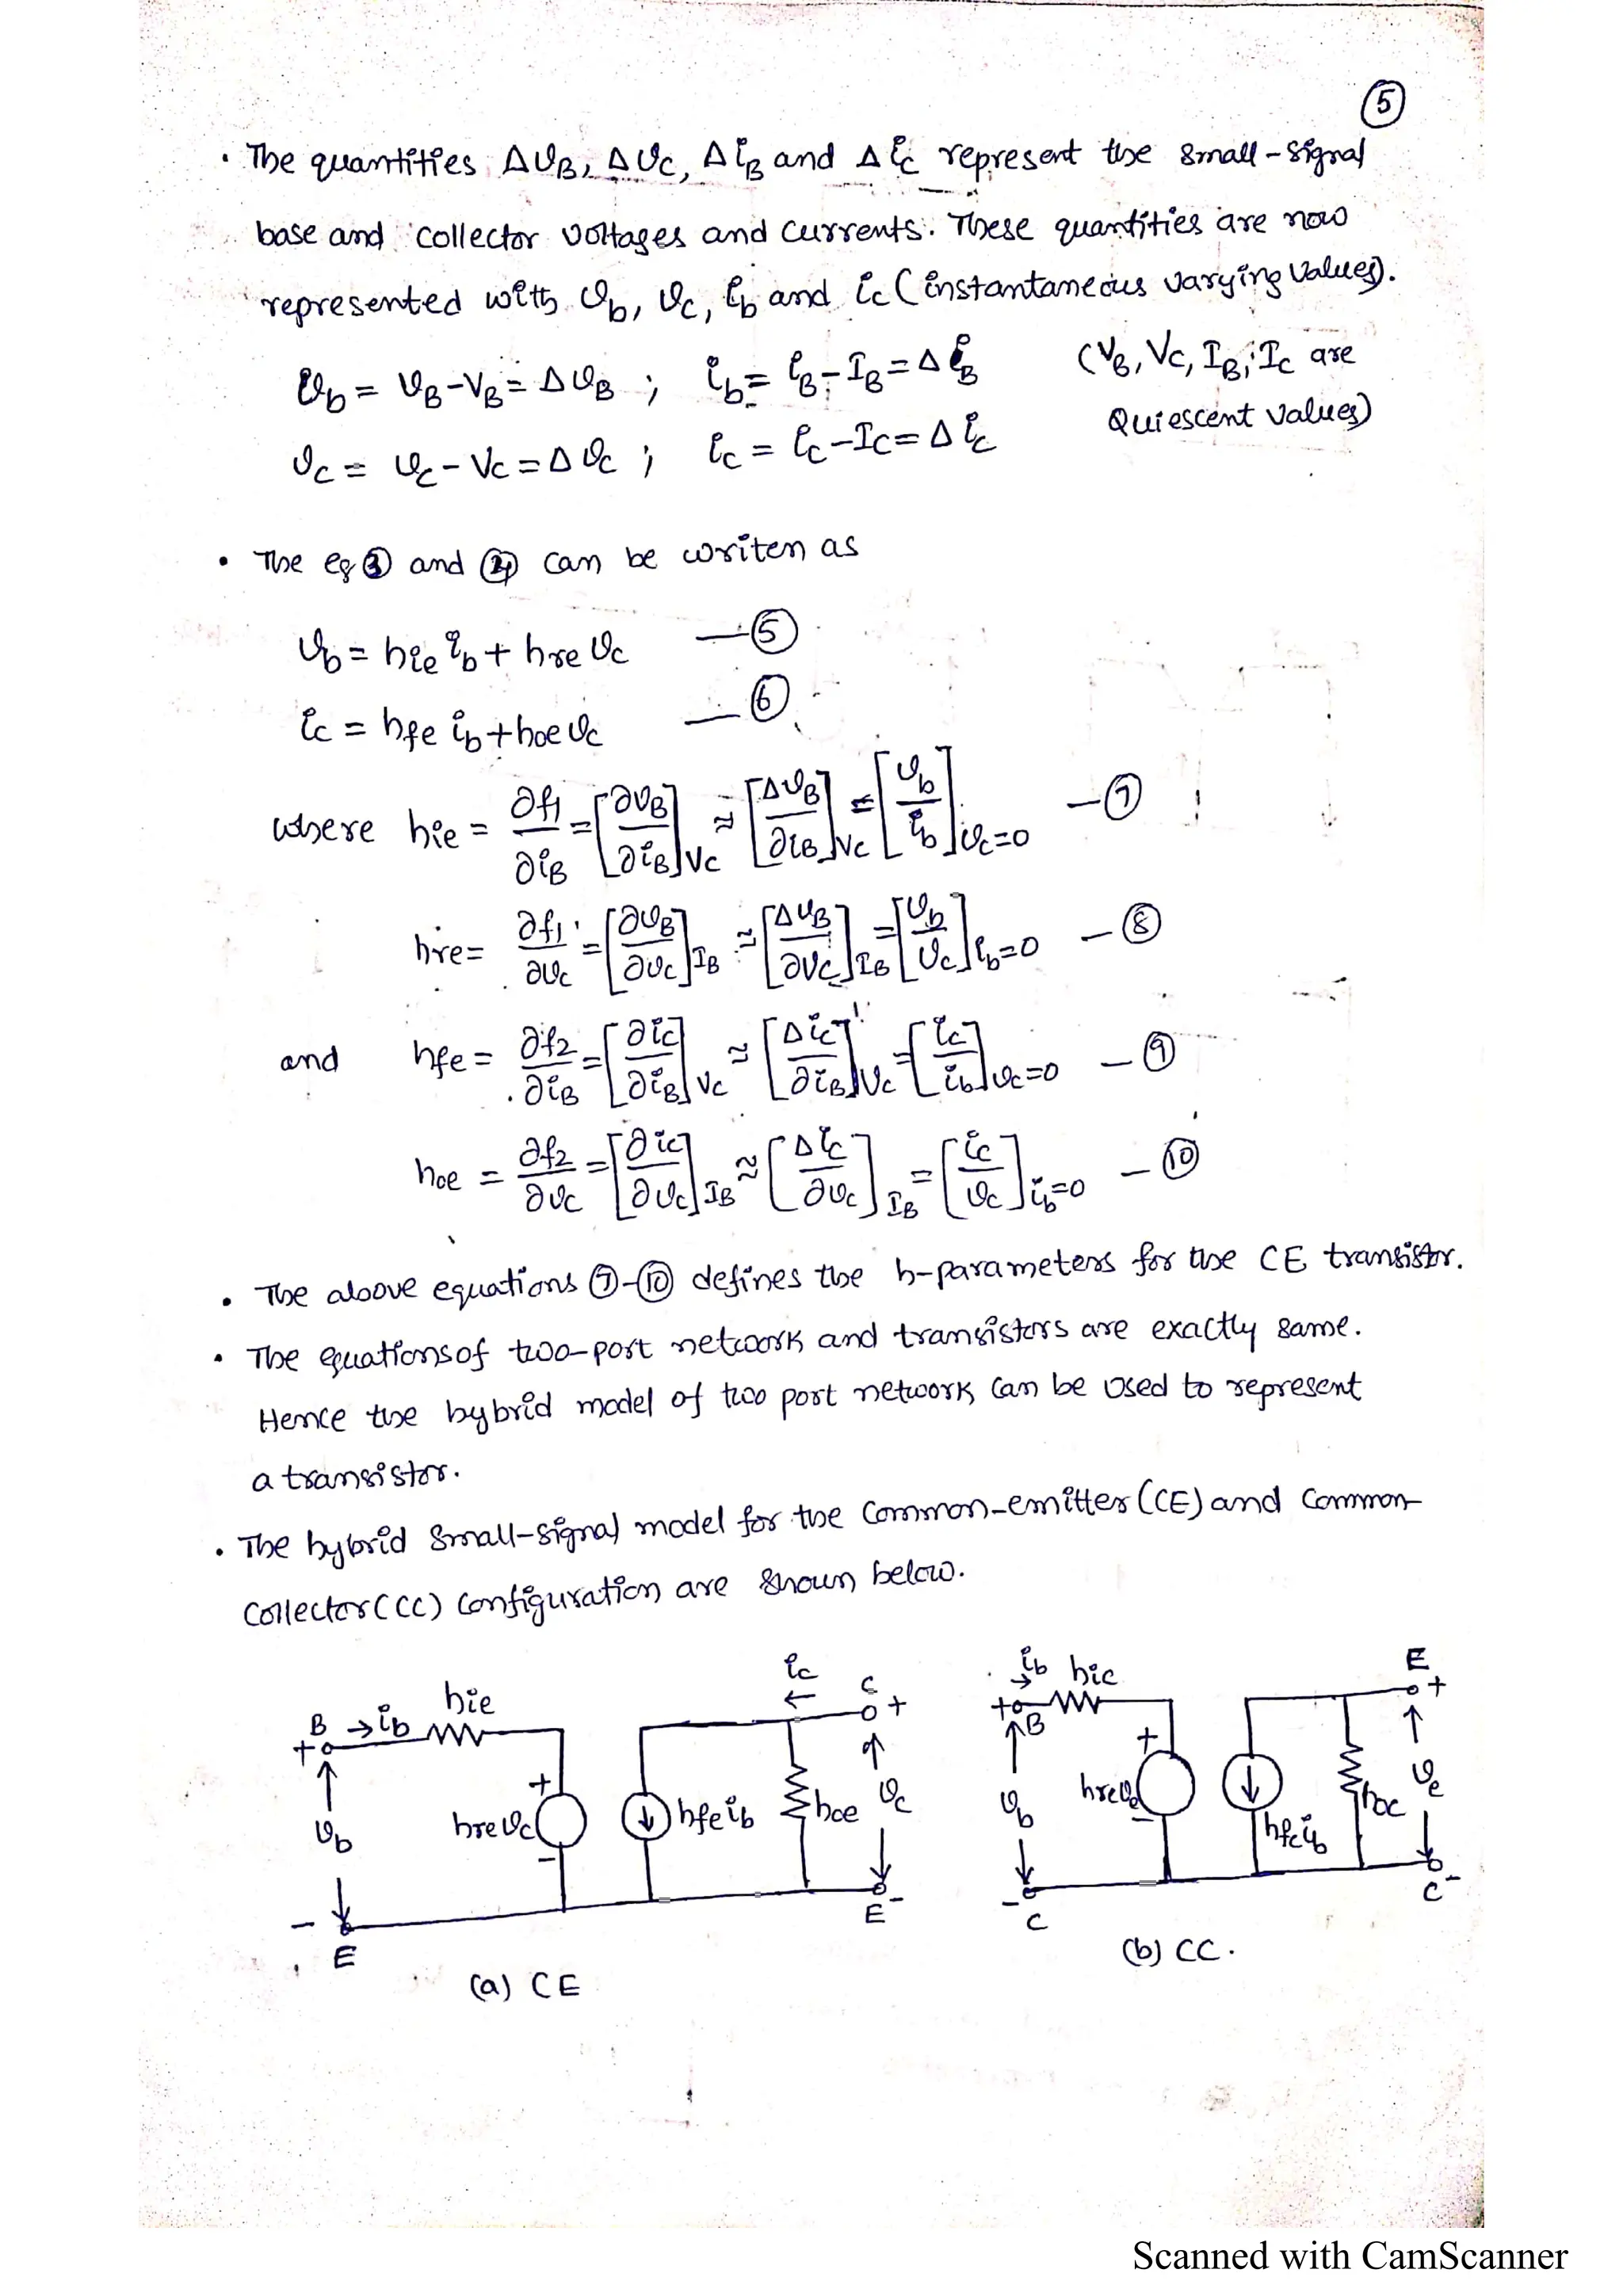 5
• The quantities ΔvB, ΔvC, ΔiB and ΔiC represent the small-signal
base and collector voltages and currents. These quantities are now
represented with vb, vc, ib and ic (instantaneous varying values).
vb = vB - VB = ΔvB ; ib = iB - IB = ΔiB (VB, VC, IB, IC are
vc = vC - VC = ΔvC ; ic = iC - IC = ΔiC Quiescent values)
• The eq ③ and ④ can be writen as
vb = hie ib + hre vc —⑤
ic = hfe ib + hoe vc —⑥
where hie = ∂f1/∂iB = [∂vB/∂iB]VC ≈ [ΔvB/∂iB]VC = [vb/ib]vc=0 —⑦
hre = ∂f1/∂vc = [∂vB/∂vc]IB ≈ [ΔvB/∂vc]IB = [vb/vc]ib=0 —⑧
and hfe = ∂f2/∂iB = [∂ic/∂iB]VC ≈ [Δic/∂iB]VC = [ic/ib]vc=0 —⑨
hoe = ∂f2/∂vc = [∂ic/∂vc]IB ≈ [Δic/∂vc]IB = [ic/vc]ib=0 —⑩
• The above equations ⑦-⑩ defines the h-parameters for the CE transistor.
• The equations of two-port network and transistors are exactly same.
Hence the hybrid model of two port network can be used to represent
a transistor.
• The hybrid small-signal model for the Common-emitter (CE) and Common
Collector (CC) configuration are shown below.
B → ib hie
+
vb
-
E
+
hre vc
-
hfe ib
hoe
ic
←
C
+
vc
-
E
(a) CE
ib hic
→
+
B
vb
-
C
+
hreve
-
hfcib
hoc
E
+
ve
-
C
(b) CC.
Scanned with CamScanner